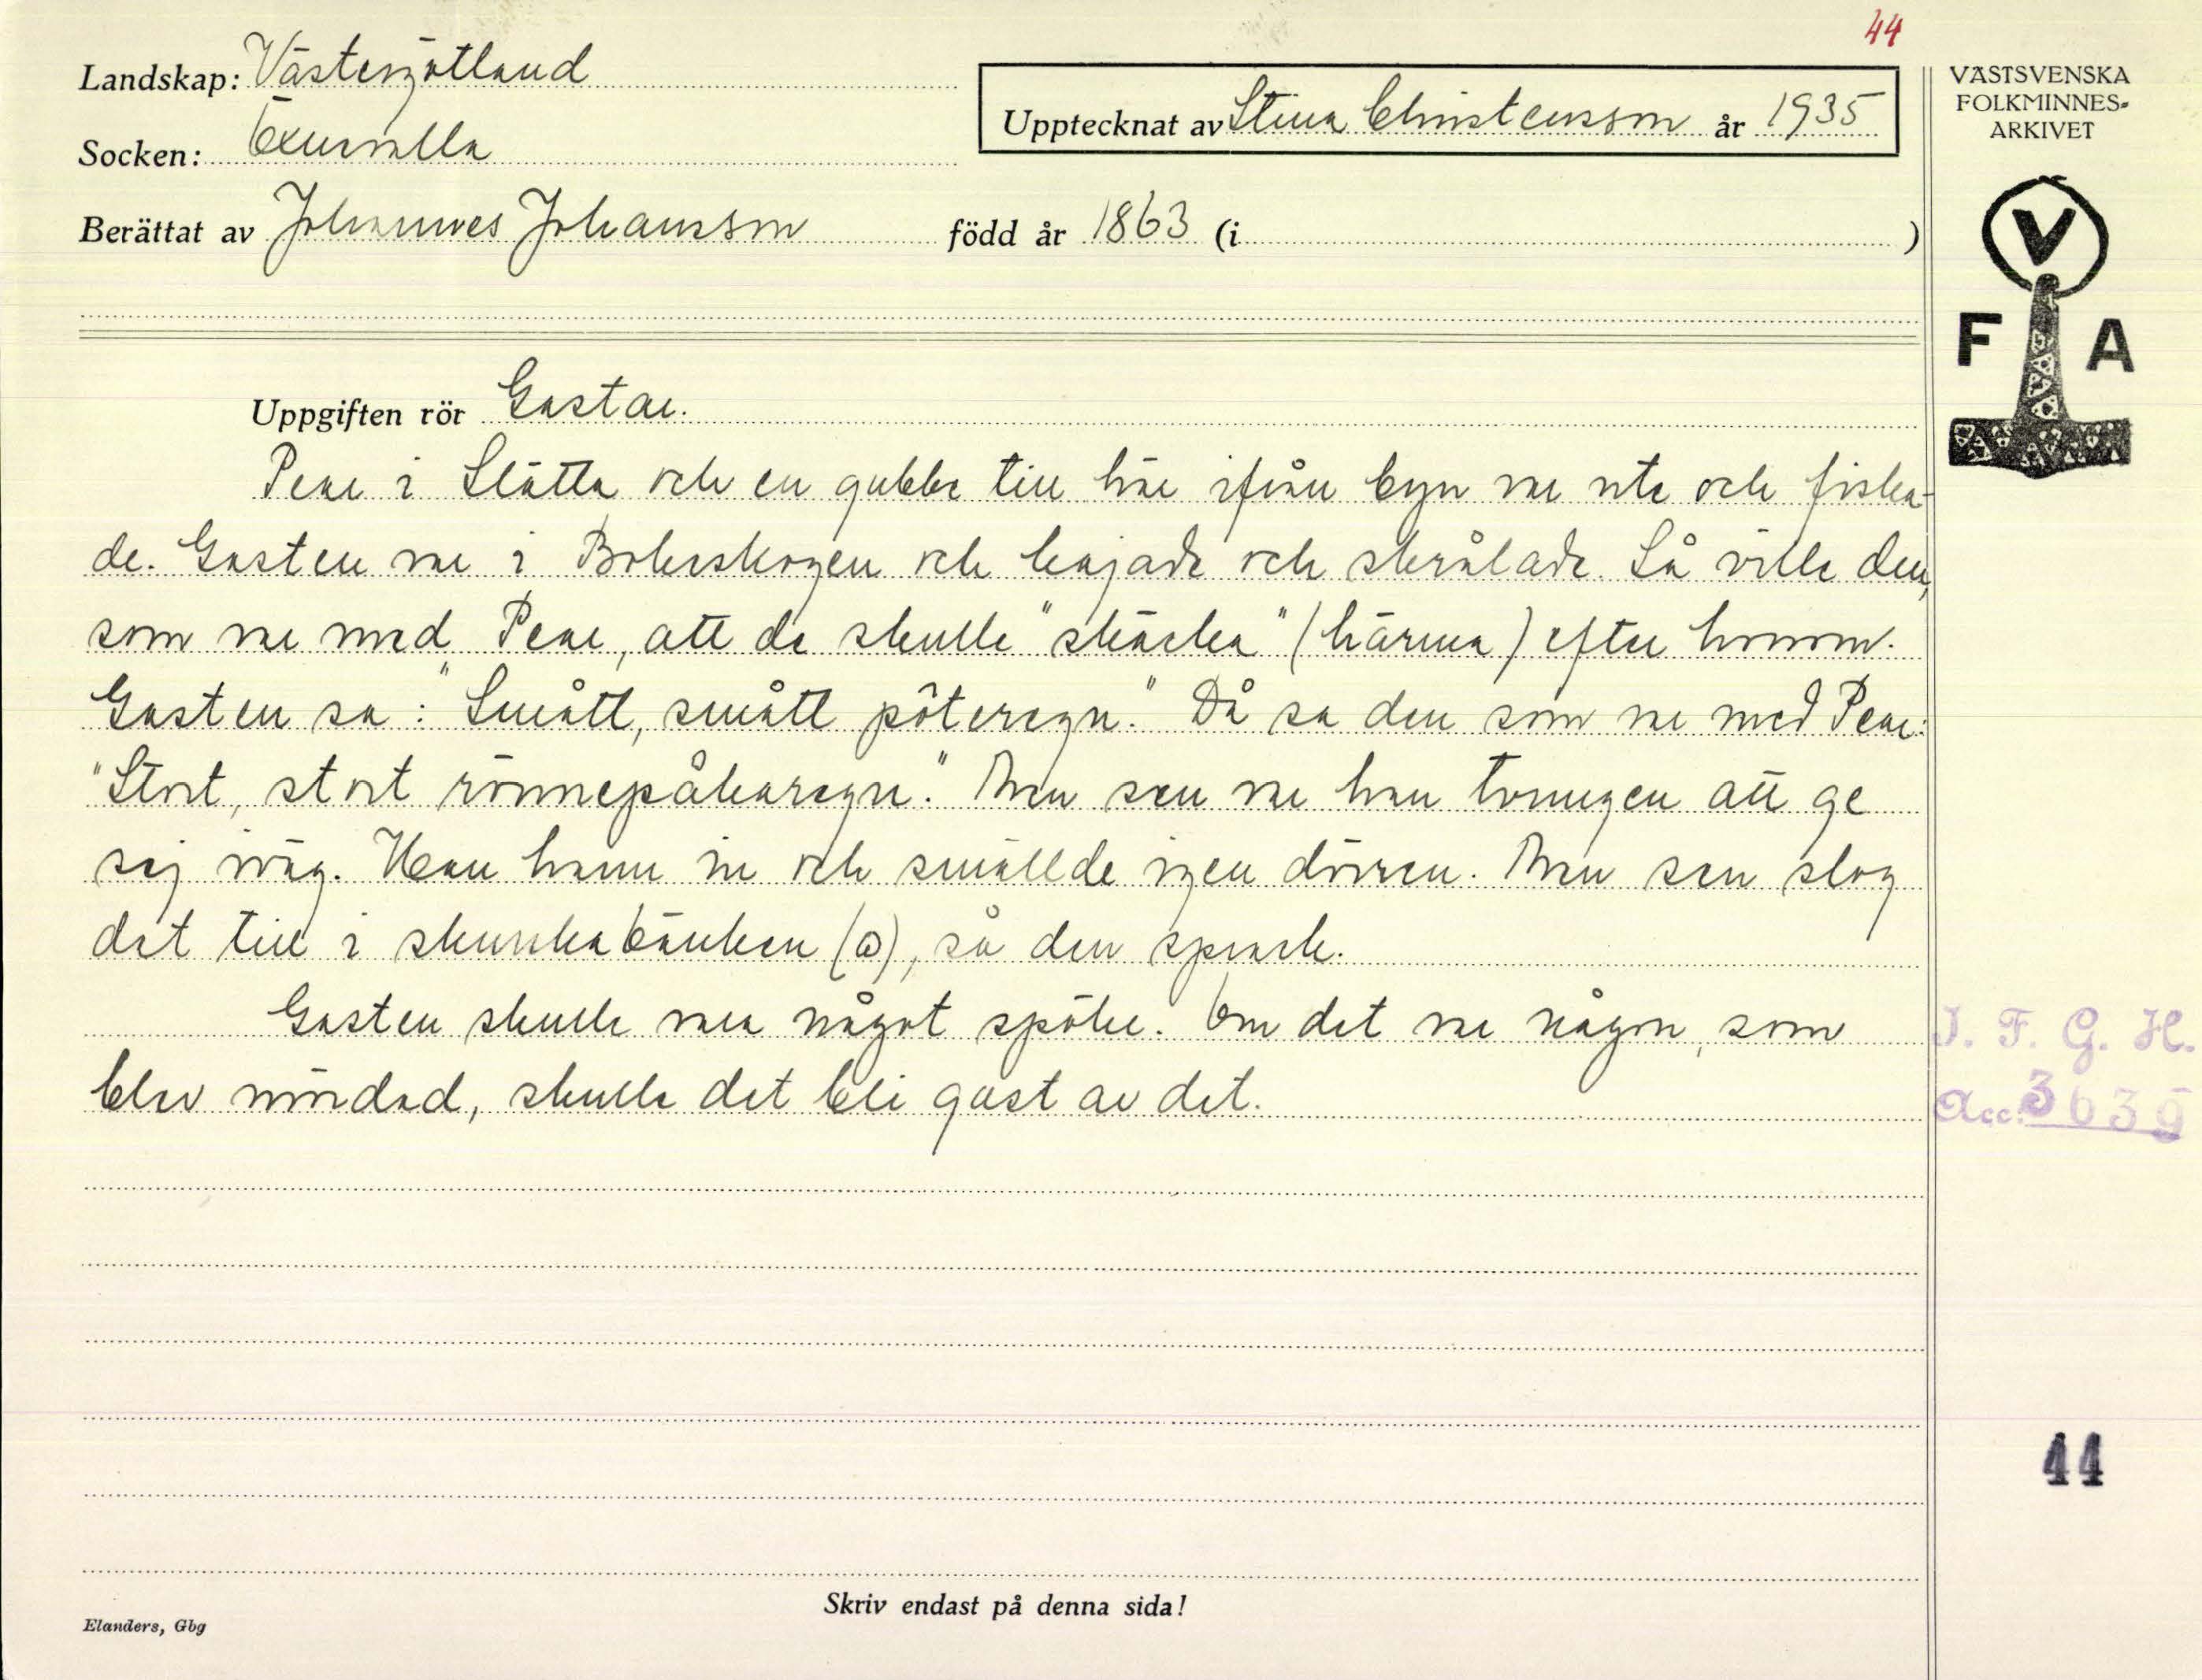 44
Landskap: Västergötland
VÄSTSVENSKA
FOLKMINNES-
ARKIVET
Upptecknat av Stina Christensson år 1935
Socken: Öxnevalla
Berättat av Johannes Johansson född år 1863 (i )
V
F A
Uppgiften rör Gastar.
Pear i Slätta och en gubbe till här ifrån byn var ute och fiska-
de. Gasten var i Bokerskogen och hojade och skrålade. Så ville den,
som var med Pear, att de skulle "skäcka" (härma) efter honom.
Gasten sa: "Smått, smått pôteregn." Då sa den som var med Pear:
"Stort, stort rönnepåkaregn." Men sen var han tvungen att ge
sej iväg. Han hann in och smällde igen dörren. Men sen slog
det till i skunkabänken (o), så den sprack.
Gasten skulle vara något spöke. Om det var någon, som
blev mördad, skulle det bli gast av det.
I. F. G. H.
Acc. 3639
44
Skriv endast på denna sida!
Elanders, Gbg